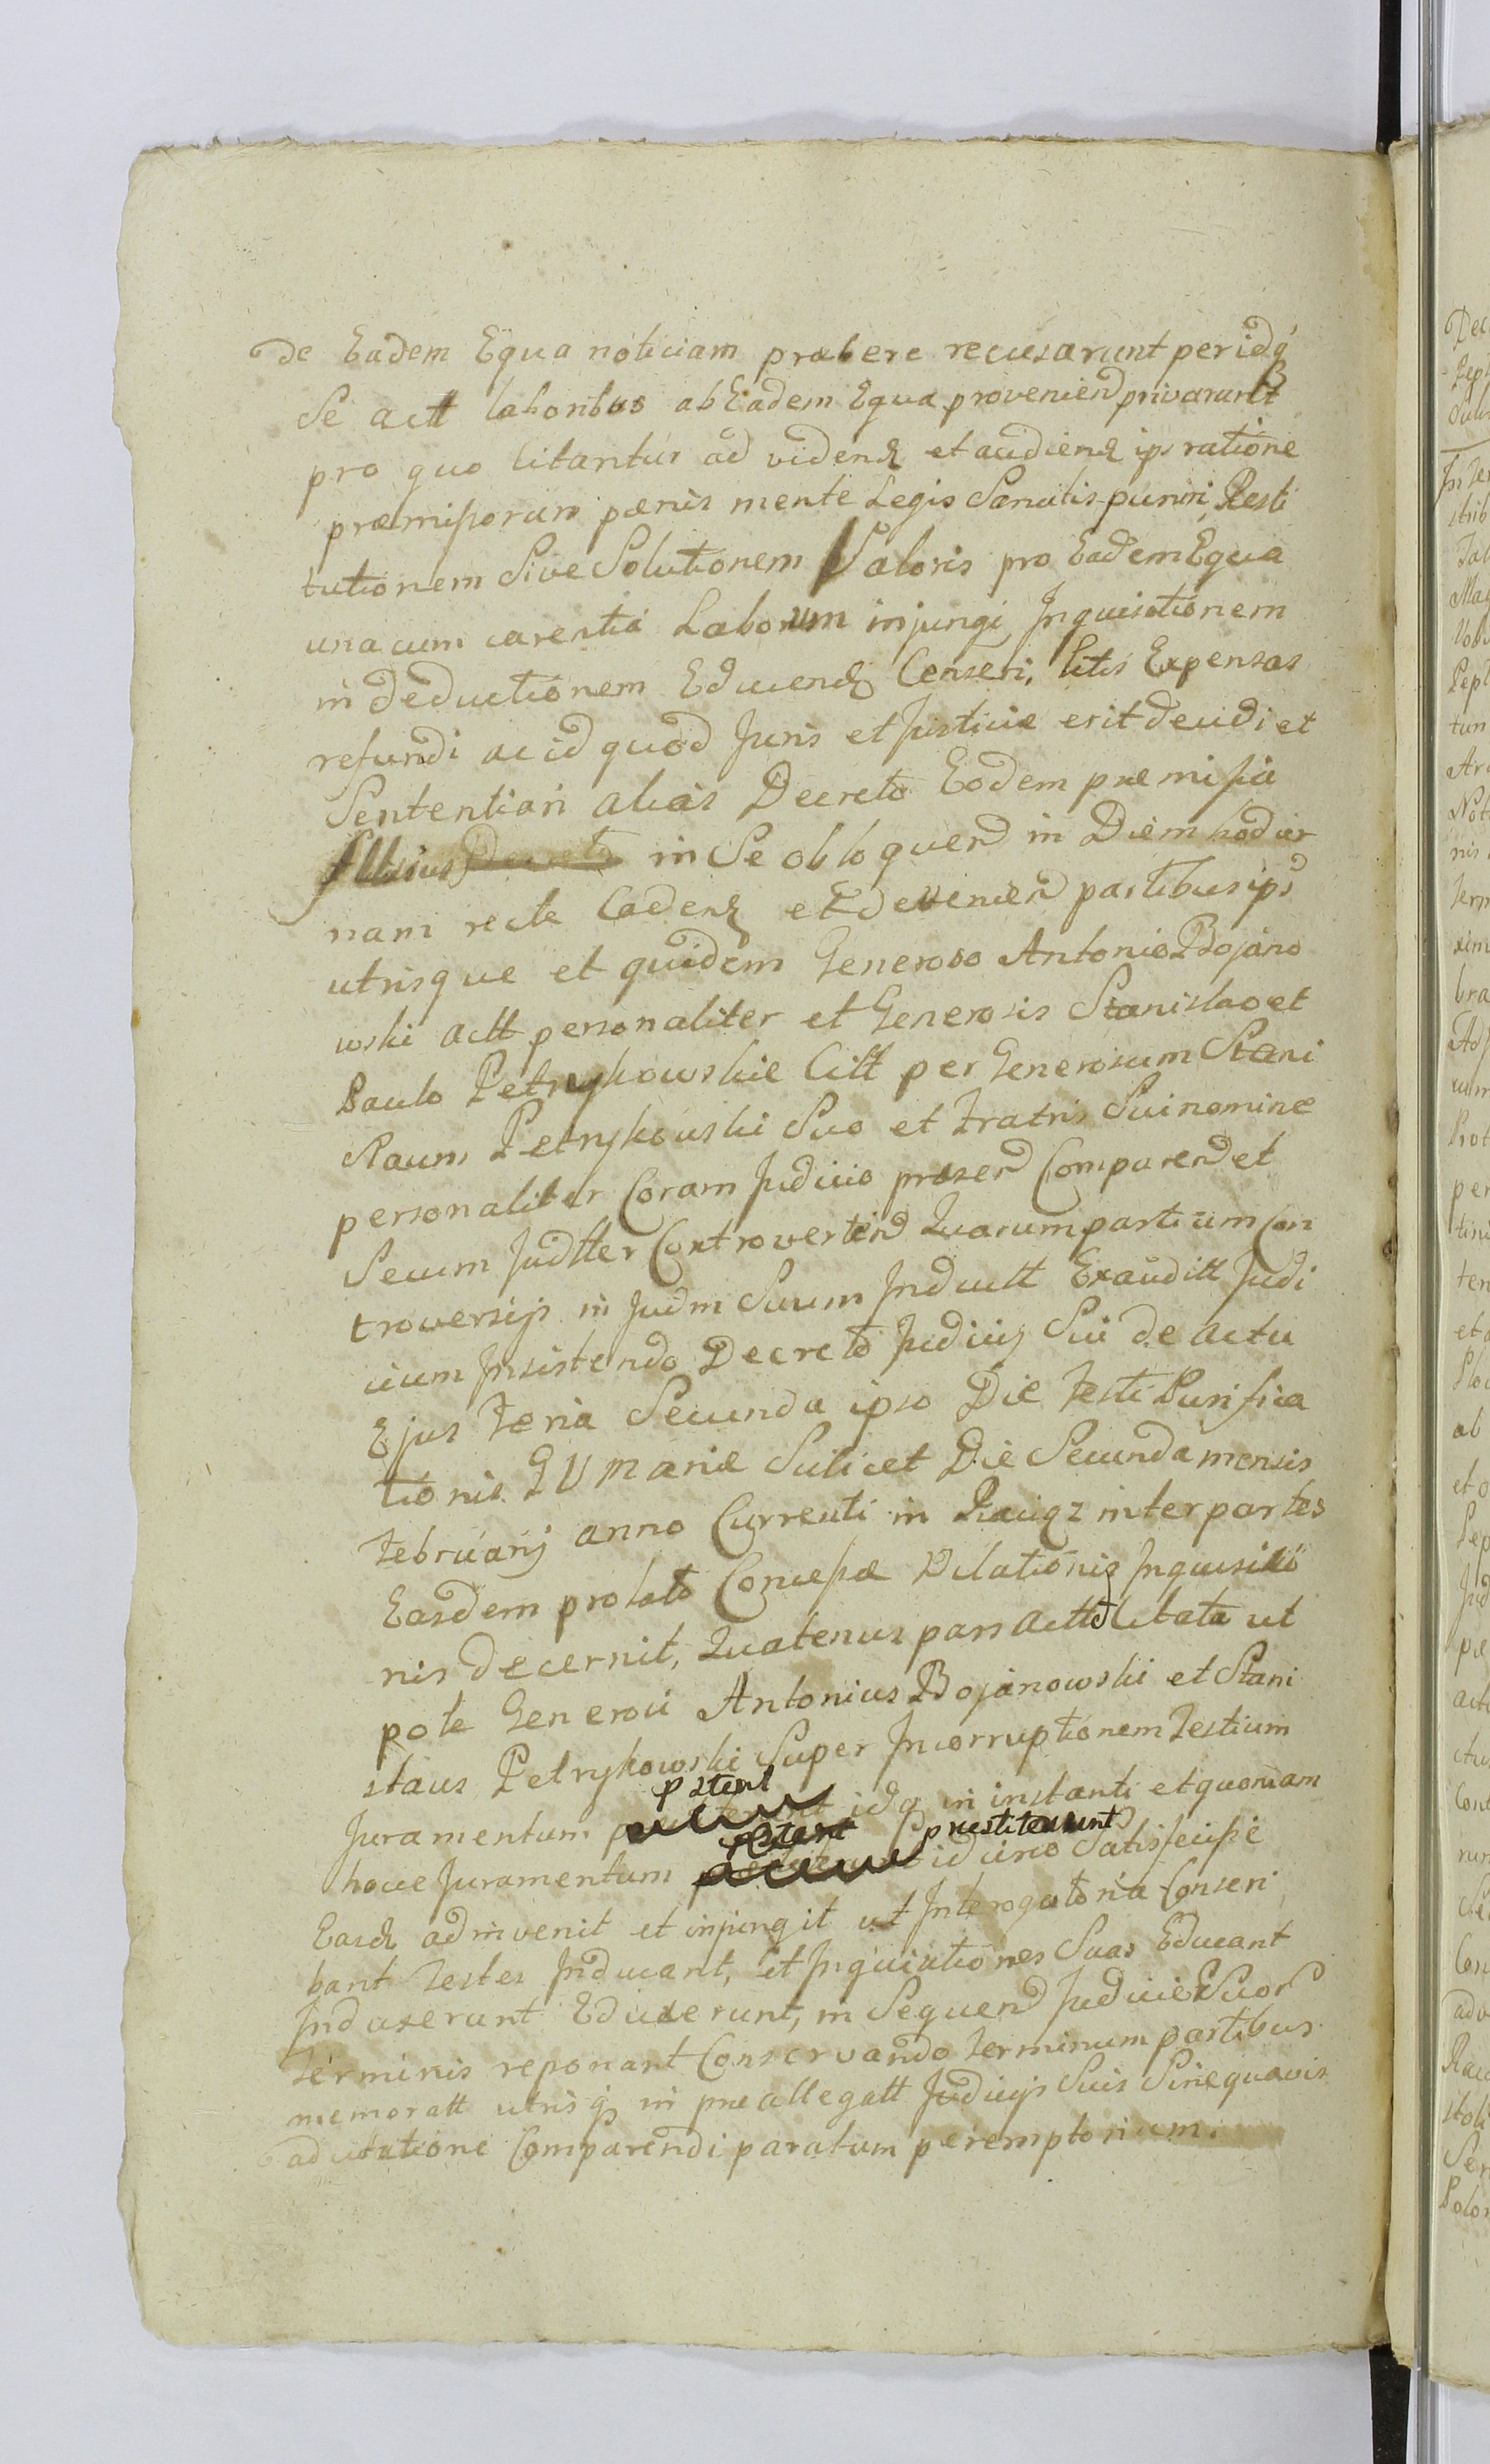 de Eadem Equa noticiam præbere recusarunt per idq
Se actt laboribus ab Eadem Equa provenien privarunt
pro quo Citantur ad videnđ et audienđ ips ratione
præmissorum pænis mente Legis Sanutis puniri Resti
tutionem Sive Solutionem Valoris pro Eadem Equa
una cum carentia Laborum injungi Inquisitionem
in deductionem Educenđ Censeri, litis Expensas
refundi ac id quod Juris et Justiciæ erit decidi et
Sententiari alias Decreto Eodem præmissa
in Se obloquend in Diem hodier
nam recte Cadenđ et devenien partibus ips
utrisque et quidem Generoso Antonio Bojano
wski actt personaliter et Generosis Stanislao et
Paulo Petrykowskie Citt per Generosum Stani
slaum Petrykowski Suo et Fratris Sui nomine
personaliter Coram Judicio præsen Comparend et
Secum Judtter Controverten Quarum partium Con
troversijs in Judm Suum Inductt Exauditt Judi
cium Insistendo Decreto Judicij Sui de actu
Ejus Feria Secunda ipso Die Festi Purifica
tionis BV Mariæ Scilicet Die Secunda mensis
Februarij anno Currenti in Raciąz inter partes
Easdem prolato Concessæ Dilationis Inquisitio
nis decernit, Quatenus pars actt Citata ut
pote Generosi Antonius Bojanowski et Stani
slaus Petrykowski Super Incorruptionem Testium
pstent
Juramentum idq in instanti et quoniam
pstent præstiterunt
hocce Juramentum id circo Satisfecisse
Easđ adinvenit et injungit ut Interogatoria Conseri
bant Testes Inducant, et Inquisitiones Suas Educant
Induxerunt Eduxerunt, in Sequend Judicior Suor
terminis reponant Conservando terminum partibus
memoratt utrisq in præallegatt Judicijs Suis Sine quavis
adcitatione Comparendi paratum peremptorium.